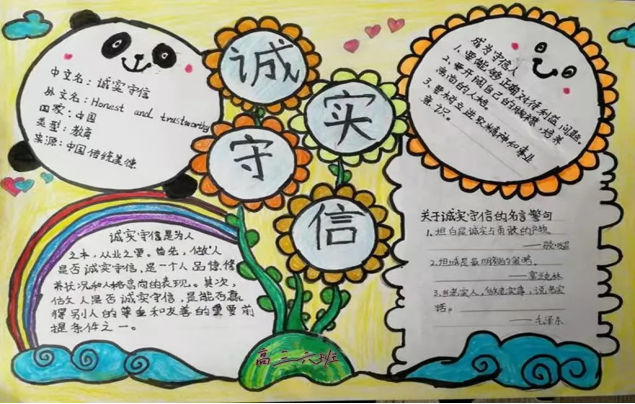 诚
实
守
信
中文名：诚实守信
外文名：Honest and trustworthy
国家：中国
类型：教育
来源：中国传统美德
成为守信人
1.要能够正确对待利益问题。
2.要开阔自己的胸襟，培养
高尚的人格。
3.要树立进取精神和事业
意识。
诚实守信是为人
之本，从业之要。首先，做人
是否诚实守信，是一个人品德修
养状况和人格高尚的表现。其次，
做人是否诚实守信，是能否赢
得别人的尊重和友善的重要前
提条件之一。
关于诚实守信的名言警句
1.坦白是诚实与勇敢的产物。
2.坦诚是最明智的策略。
——富兰克林
3.当老实人，做老实事，说老实
话。
——毛泽东
高三六班